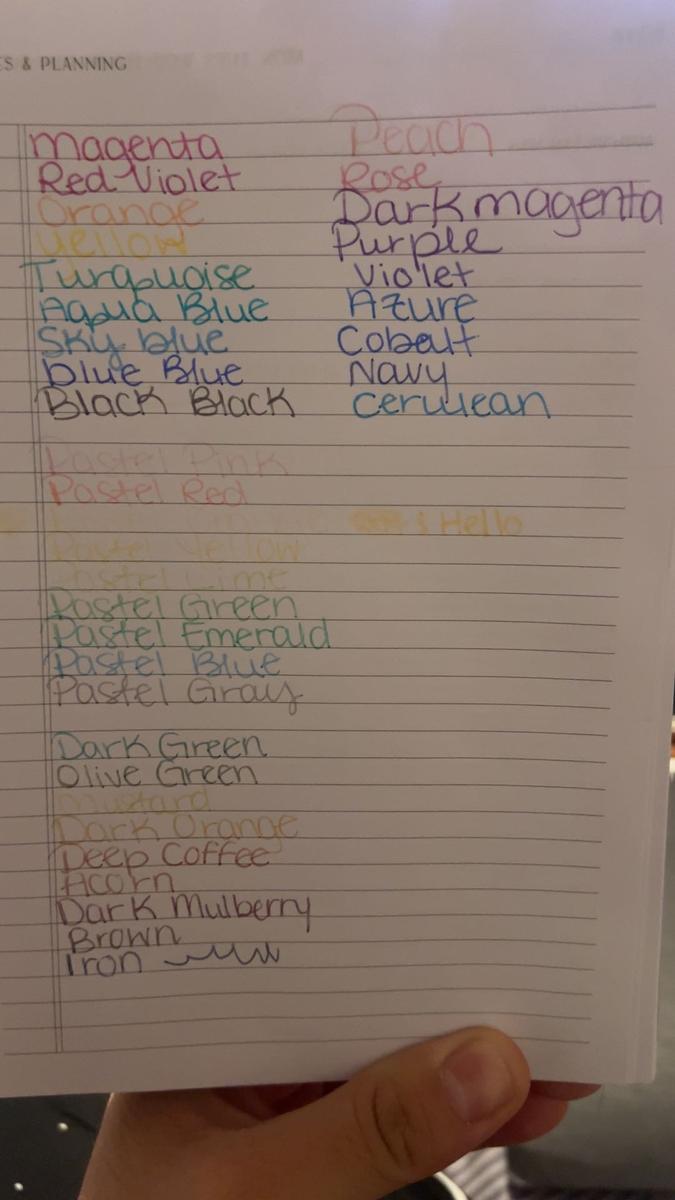 ES & PLANNING
Magenta
Red-Violet
Orange
Yellow
Turqouise
Aqua Blue
Sky blue
blue Blue
Black Black
Peach
Rose
Dark magenta
Purple
Violet
Azure
Cobalt
Navy
Cerulean
Pastel Pink
Pastel Red
Hello
Pastel Yellow
Pastel Lime
Pastel Green
Pastel Emerald
Pastel Blue
Pastel Gray
Dark Green
Olive Green
Mustard
Dark Orange
Deep Coffee
Acorn
Dark Mulberry
Brown
Iron